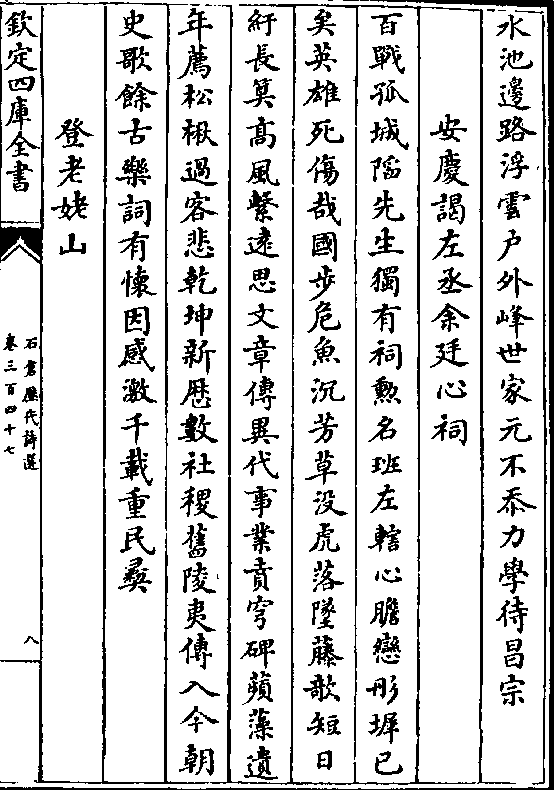 水池邊路浮雲户外峰世家元不忝力學待昌宗
安慶謁左丞余廷心祠
百戰孤城陷先生獨有祠勲名班左轄心膽戀彤墀已
矣英雄死傷哉國步危魚沉芳草没虎落墜藤歌短日
紆長筭高風繫逺思文章傳異代事業賁穹碑蘋藻遺
年薦松楸過客悲乾坤新厯數社稷舊陵夷傳入今朝
史歌餘古樂詞有懷因感激千載重民彞
登老姥山
欽定四庫全書
石倉歴代詩選
卷三百四十七
八